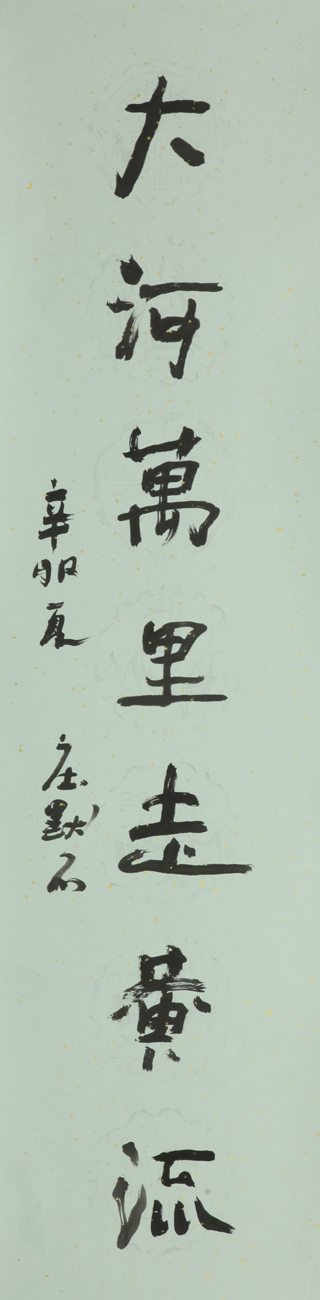 大河萬里走黃流
辛卯夏 庄默石